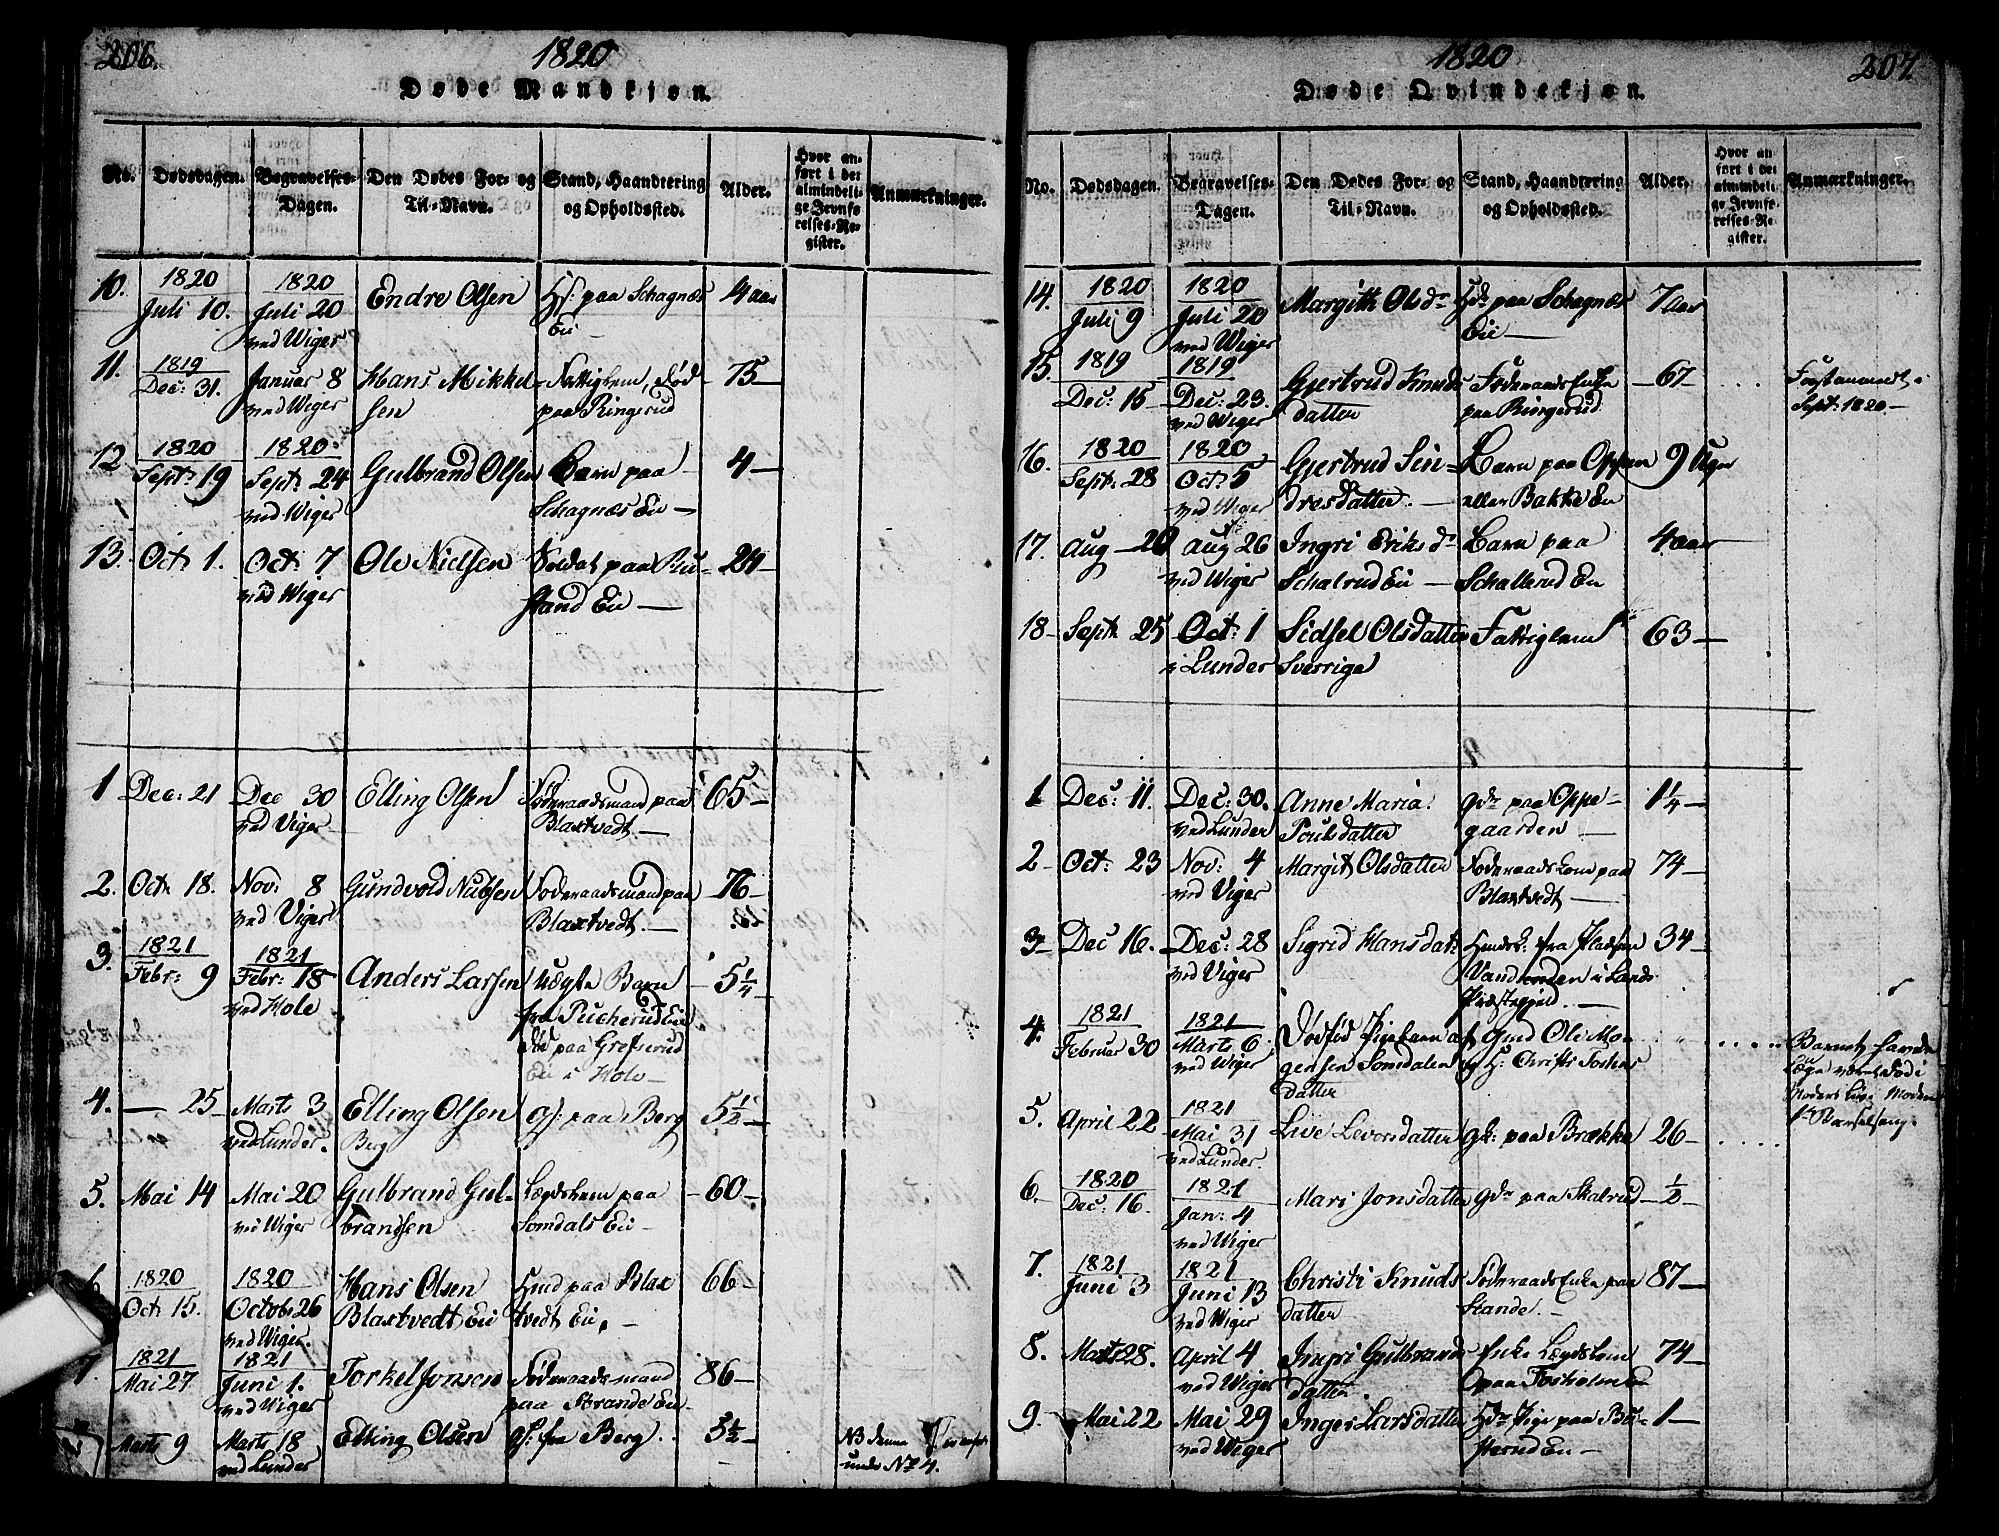 206.
1820
Døde Mandkjøn.
No.
Dødsdagen.
Begravelses-
Dagen.
Den Dødes For- og
Til-Navn.
Stand, Haandtering
og Opholdssted.
Alder.
Hvor an-
ført i det
almindeli-
ge Jevnfø-
relses-Re-
gister.
Anmærkninger.
10.
1820
Juli 10.
1820
Juli 20
ved Wiger
Endre Olsen
Hs: paa Schagnæs
Eie
4 aar
11.
1819
Dec: 31.
Januar 8
ved Wiger
Hans Mikkel-
sen
Fattiglem, død
paa Ringerud
75
12
1820
Sept: 19
1820
Sept: 24
ved Wiger
Gulbrand Olsen
Barn paa
Schagnæs Eie
4
13.
Oct: 1.
Oct: 7
ved Wiger
Ole Nielsen
Soldat paa Ru-
stand Eie
24
1
Dec: 21
Dec 30
ved Viger
Elling Olsen
Føderaadsmand paa
Blaxtvedt
65
2.
Oct: 18.
Nov: 8
ved Viger
Gundvold Nubsen
Foderaadsmand paa
Blaxtvedt.
76
3.
1821
Febr: 9
1821
Febr: 18
ved Hole
Anders Larsen
Uægte Barn
fra Pucherud Eie
Død paa Grefsrud
Eie i Hole
5 1/4
4.
25
Marts 3
ved Lunder.
Elling Olsen
Berg
Gs: paa Berg
5 1/2
5.
Mai 14
Mai 20
ved Wiger
Gulbrand Gul-
brandsen
Lægdslem paa
Somdals Eie
60
6
1820
Oct: 15.
1820
Octob: 26
ved Wiger.
Hans Olsen
Blaxtvedt Eie
Hmd paa Blax
tvedt Eie.
66
7.
1821
Mai 27
1821
Juni 1.
ved Wiger
Torkel Jonsen
Føderaadsmand
paa Strande Eie
86
Marts 9
Marts 18
ved Lunder
Elling Olsen
Gs: fra Berg.
5 1/2
NB denne er anført
under No 4.
1820
207.
Døde Qvindekjøn.
No.
Dødsdagen.
Begravelses-
Dagen.
Den Dødes For- og
Til-Navn.
Stand, Haandtering
og Opholdssted.
Alder.
Hvor an-
ført i det
almindeli-
ge Jevnfø-
relses-Re-
gister.
Anmærkninger.
14.
1820
Juli 9
1820
Juli 20
ved Wiger
Margith Olsdr
Hdr paa Schagnæs
Eie
7 aar
15.
1819
Dec: 15
1819
Dec: 23.
ved Wiger
Gjertrud Knuds
datter
Føderaads Enke
paa Ringerud.
67
Først anmeldt i
Sept: 1820.
16.
1820
Sept: 28
1820
Oct: 5
ved Wiger
Gjertrud Sin-
dresdatter.
Barn paa Oppen
eller Bakke Eie
9 Uger
17.
Aug 20
Aug 26
ved Wiger
Ingri Eriksdr
Schalrud Eie
Barn paa
Schallerud Eie
4 aar
18
Sept: 25
Oct: 1
i Lunder
Sidsel Olsdatter
Sverrige
Fattiglem
63
1
Dec: 11.
Dec: 30.
ved Lunder
Anne Maria
Poulsdatter
Gdr paa Oppe-
gaarden
1 1/4
2
Oct: 23
Nov: 4
ved Viger
Margit Olsdatter
Foderaadskone paa
Blaxtvedt
74
3
Dec 16.
Dec: 28
ved Viger
Sigrid Hansdatr
Huusk. fra Pladsen
Vandenden i Lands
Præstegjeld.
34
4.
1821
Februar 30
1821
Marts 6.
ved Wiger
Dødfød Pigebarn af
gensen Somdalen
datter
Gmd Ole Mo-
og H: Christi Torkels
Barnet havde
længe været død i
Moders Liv. Moderen
5.
April 22
1821
Mai 31
ved Lunder.
Live Levorsdatter
gk: paa Brækka
26
6.
1820
Dec: 16.
1821
Jan: 4
ved Wiger
Mari Jonsdatter
Gdr paa Skalrud
1/2
7.
1821
Juni 3
1821
Juni 13
ved Wiger
Christi Knuds
datter
Føderaads Enke paa
Stande.
87
8.
Marts 28.
April 4
ved Wiger
Ingri Gulbrands
datter.
Enke Lægdslem
paa Fosholm Eie
74
9.
Mai 22
Mai 29
ved Wiger
Inger Larsdatter
Hdr Pige paa Bu-
sterud Eie
1